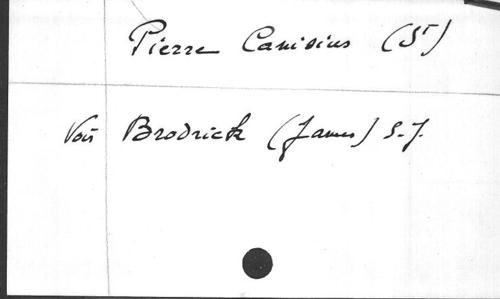 Pierre Canisius (St)
Voir Brodrick (James) S.J.